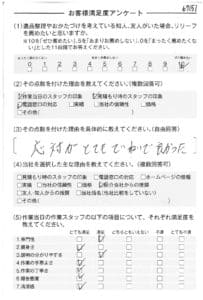 お客様満足度アンケート
(1)遺品整理やおかたづけを考えている知人、友人がいた場合、リリーフ
を薦めたいと思いますか。
※10を「ぜひ薦めたい」、5を「あまりお薦めしない」、0を「まったく薦めたくな
い」とした11段階でお答えください。
0 1 2 3 4 5 6 7 8 9 10
(2)その点数を付けた理由を教えてください。(複数回答可)
作業当日のスタッフの印象 見積もり時のスタッフの印象
電話窓口の対応 実績 当社の信頼性 価格
その他
(3)その点数を付けた理由を具体的に教えてください。(自由回答)
応対がとてもていねいで良かった
(4)当社を選択した主な理由を教えてください。(複数回答可)
見積もり時のスタッフの印象 電話窓口の対応 ホームページの情報
実績 当社の信頼性 価格 紹介会社からの推薦
友人、知人からの推薦 当日の作業内容 その他
(5)作業当日の作業スタッフの以下の項目について、それぞれ満足度を
教えてください。
とても満足 満足 どちらでもない 不満 とても不満
1 専門性
2 親身さ
3 説明の分かりやすさ
4 作業の手際よさ
5 作業の丁寧さ
6
7 清潔感